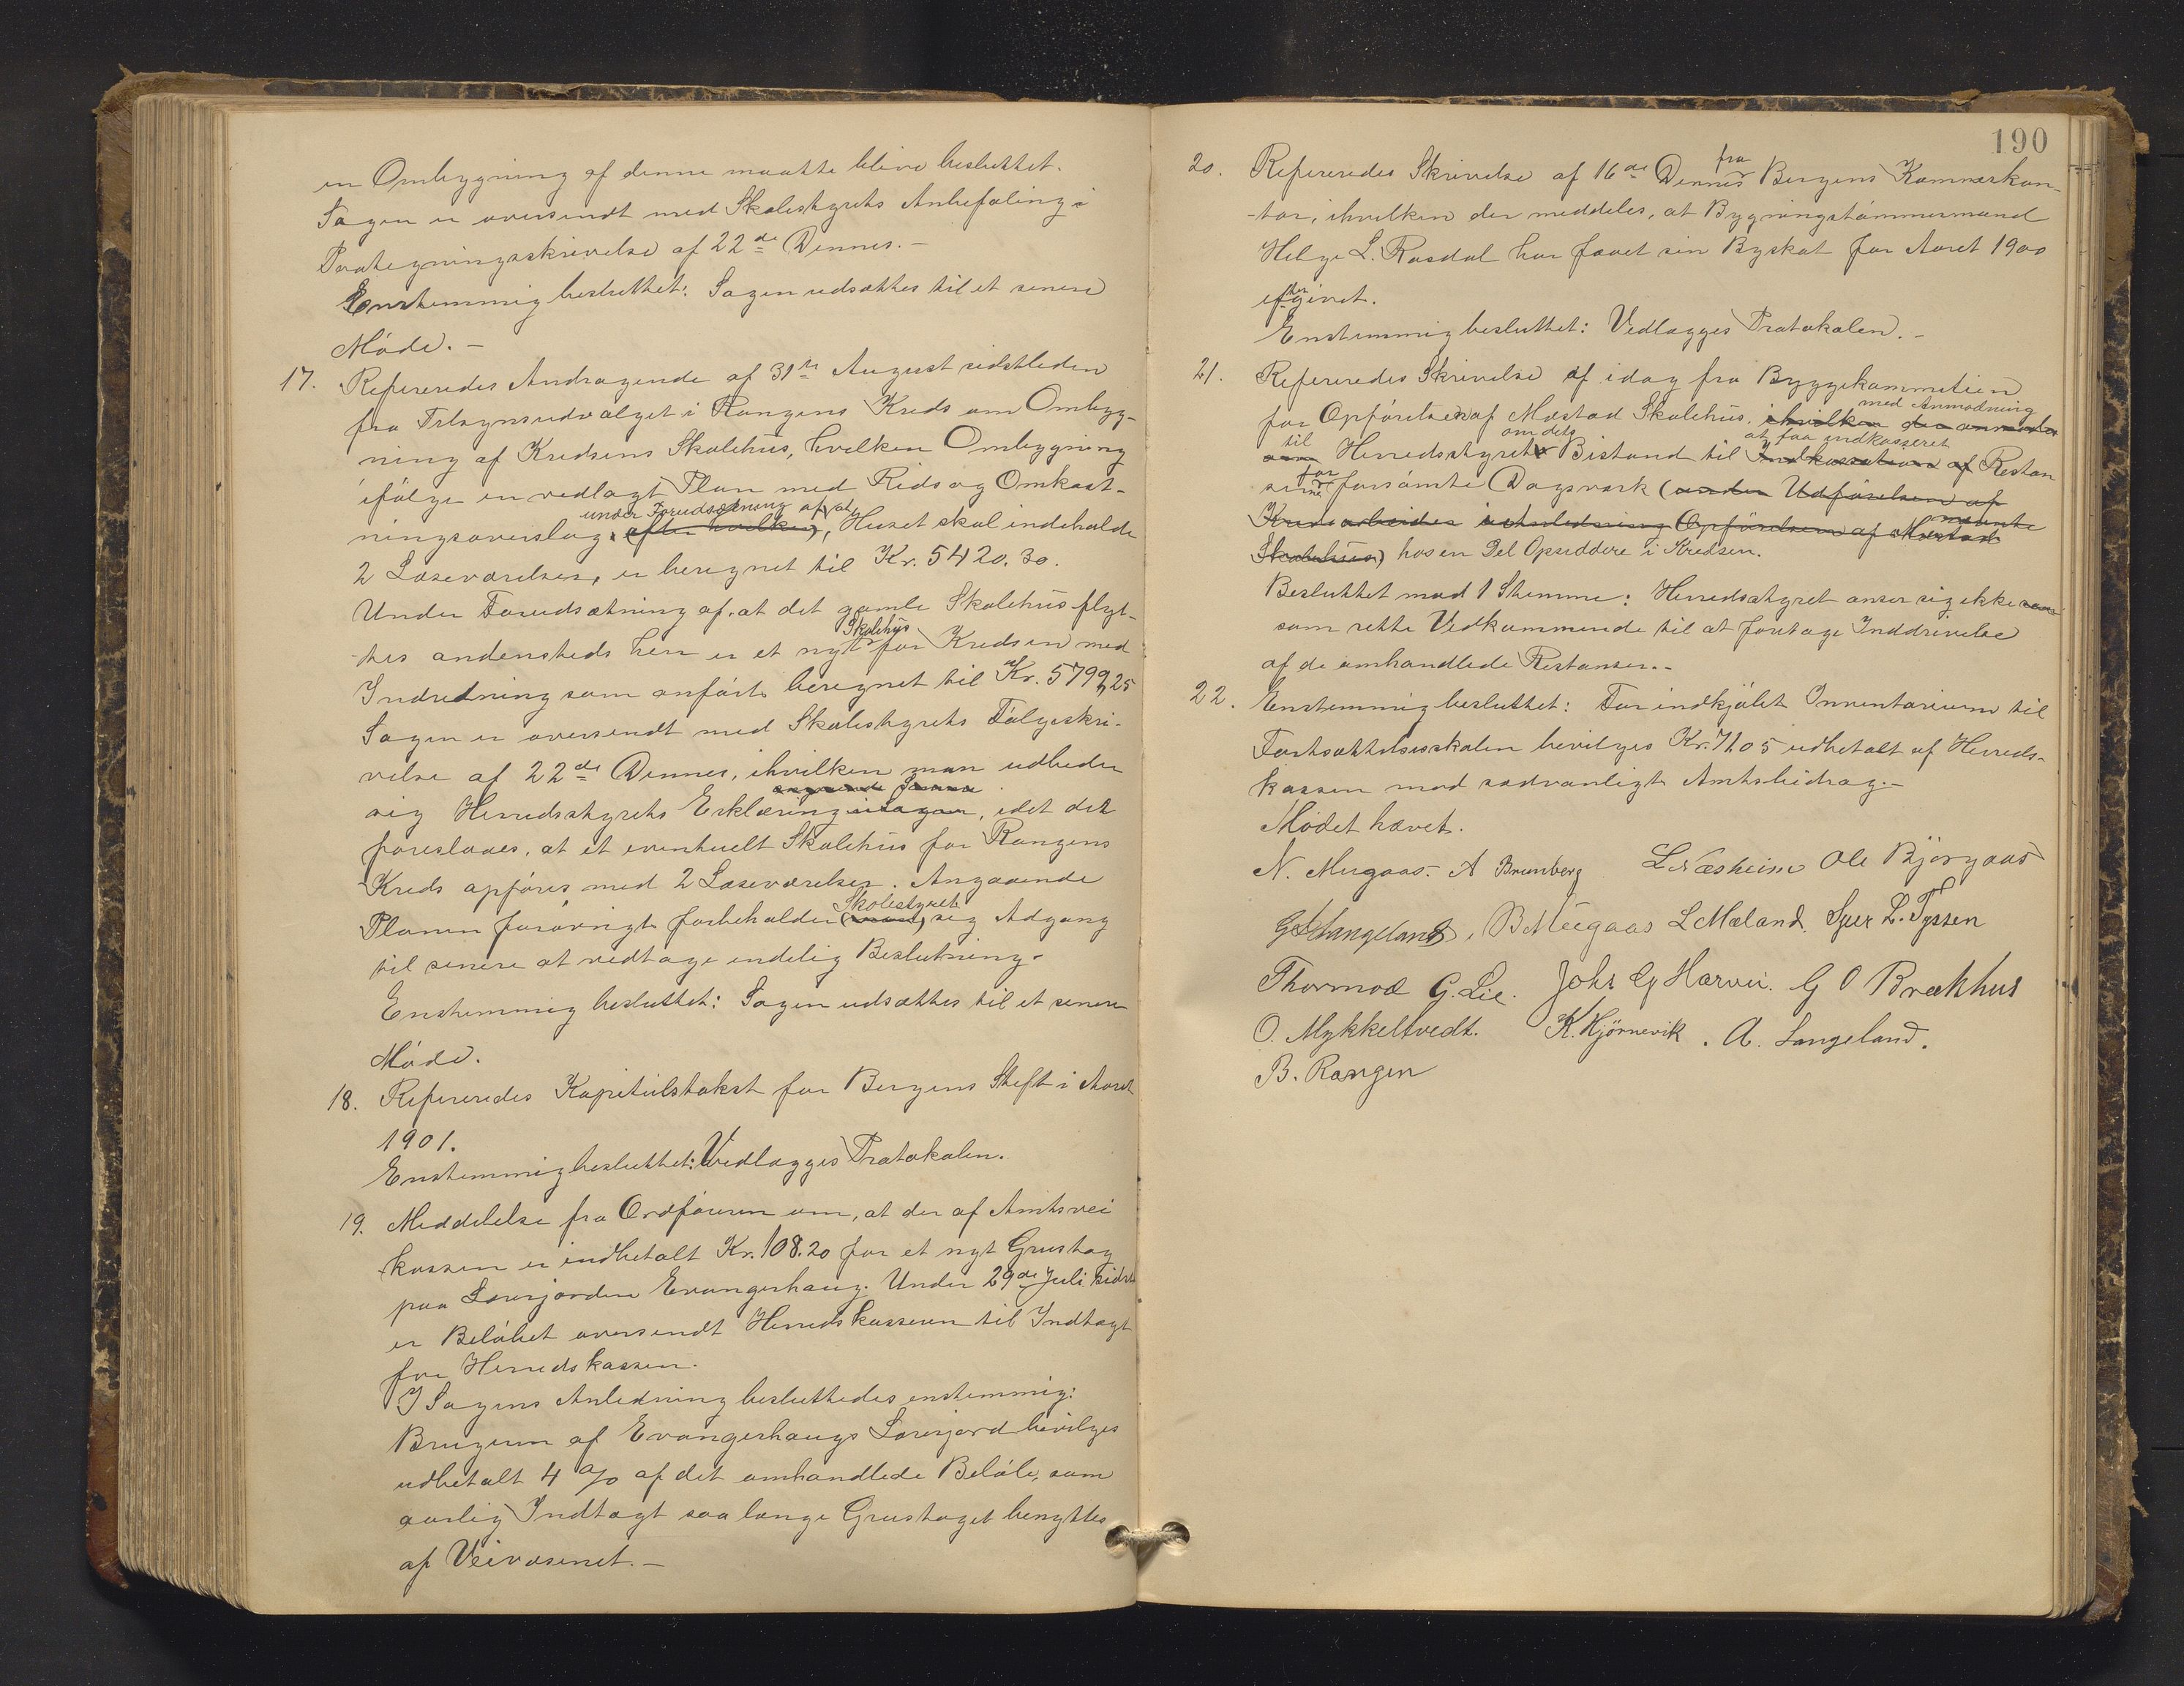 en Ombygning af denne maatte blive besluttet.
Sagen er oversendt med Skolestyrets Anbefaling i
Paategningsskrivelse af 22de Dennes. –
Enstemmig besluttet: Sagen udsættes til et senere
Møde. –
17. Refereredes Andragende af 31te August sidstleden
fra Tilsynsudvalget i Rongens Kreds om Ombyg-
ning af Kredsens Skolehus, hvilken Ombygning
ifølge en vedlagt Plan med Rids og Omkost-
under Forudsætning af, at
ningsoverslag, (efter hvilken), Huset skal indeholde
2 Læseværelser, er beregnet til Kr. 5420.30.
Under Forudsætning af, at det gamle Skolehus flyt-
Skolehus
tes andensteds hen er et nyt for Kredsen med
Indredning som anført beregnet til Kr. 5799,25
Sagen er oversendt med Skolestyrets Følgeskri-
velse af 22de Dennes, ihvilken man udbeder
angaaende
sig Herredsstyrets Erklæring i Sagen, idet det
foreslaaes, at et eventuelt Skolehus for Rongens
Kreds opføres med 2 Læseværelser. Angaaende
Skolestyret
Planen forøvrigt forbeholder (man) sig Adgang
til senere at vedtage endelig Beslutning. –
Enstemmig besluttet: Sagen udsættes til et senere
Møde.
18. Refereredes Kapitelstakst for Bergens Stift i Aaret
1901.
Enstemmig besluttet: Vedlægges Protokolen.
19. Meddelelse fra Ordføreren om, at der af Amtsvei
kassen er indbetalt Kr. 108.20 for et nyt Grustag
paa Lensjorden Evangerhaug. Under 29de Juli sidstl
er Beløbet oversendt Herredskassereren til Indtægt
for Herredskassen.
I Sagens Anledning besluttedes enstemmig:
Brugeren af Evangerhaugs Lensjord bevilges
udbetalt 4 % af det omhandlede Beløb, som
aarlig Indtægt saa længe Grustaget benyttes
af Veivæsenet. –
190
fra
20. Refereredes Skrivelse af 16de Dennes Bergens Kæmnerkon-
-tor, ihvilken der meddeles, at Bygningstømmermand
Helge L. Rasdal har faaet sin Byskat for Aaret 1900
eftergivet.
Enstemmig besluttet: Vedlægges Protokolen. –
21. Refereredes Skrivelse af idag fra Byggekommitteen
med Anmodning
for Opførelsen af Mestad Skolehus, ihvilken der anmodes
til om dets at faa indkasseret
om Herredsstyrets Bistand til Indkassation af Restan
for
serne forsømte Dagsværk (under Udførelsen af
nævnte
Kredsarbeider i Anledning Opførelsen af Mestad
Skolehus) hos en Del Opsiddere i Kredsen.
Besluttet mod 1 Stemme: Herredsstyret anser sig ikke
som rette Vedkommende til at foretage Inddrivelse
af de omhandlede Restanser. –
22. Enstemmig besluttet: For indkjøbt Inventarium til
Fortsættelsesskolen bevilges Kr. 71.05 udbetalt af Herreds-
kassen mod sædvanligt Amtsbidrag. –
Mødet hævet.
N. Mugaas. A Brunborg L Næsheim Ole Björgaas
G Langeland, B Mugaas L Mæland. Sjur L. Tyssen
Thormod G. Lie. Johs G Horvei. G O Brækhus
O. Mykkeltvedt. K. Hjørnevik. A. Langeland.
B. Rongen